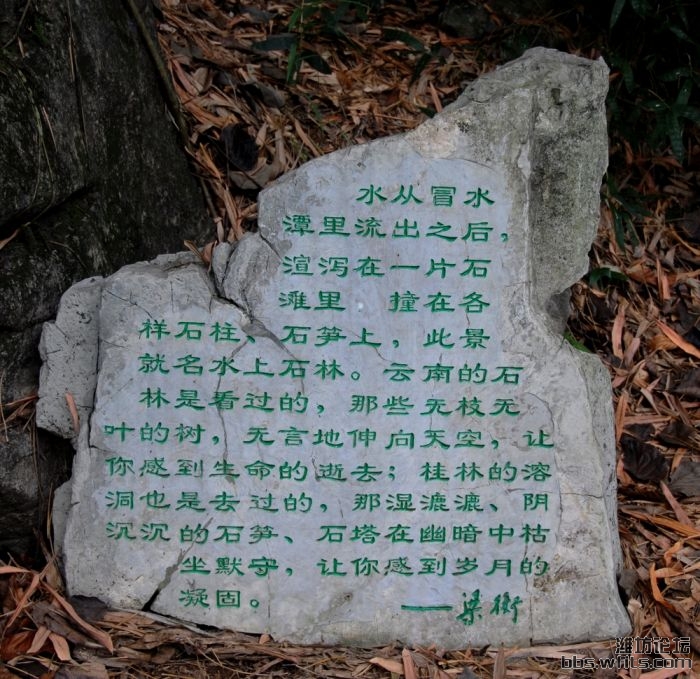 水从冒水
潭里流出之后，
渲泻在一片石
滩里 撞在各
样石柱、石笋上，此景
就名水上石林。云南的石
林是看过的，那些无枝无
叶的树，无言地伸向天空，让
你感到生命的逝去；桂林的溶
洞也是去过的，那湿漉漉、阴
沉沉的石笋、石塔在幽暗中枯
坐默守，让你感到岁月的
凝固。 ——梁衡
潍坊论坛
bbs.wfits.com